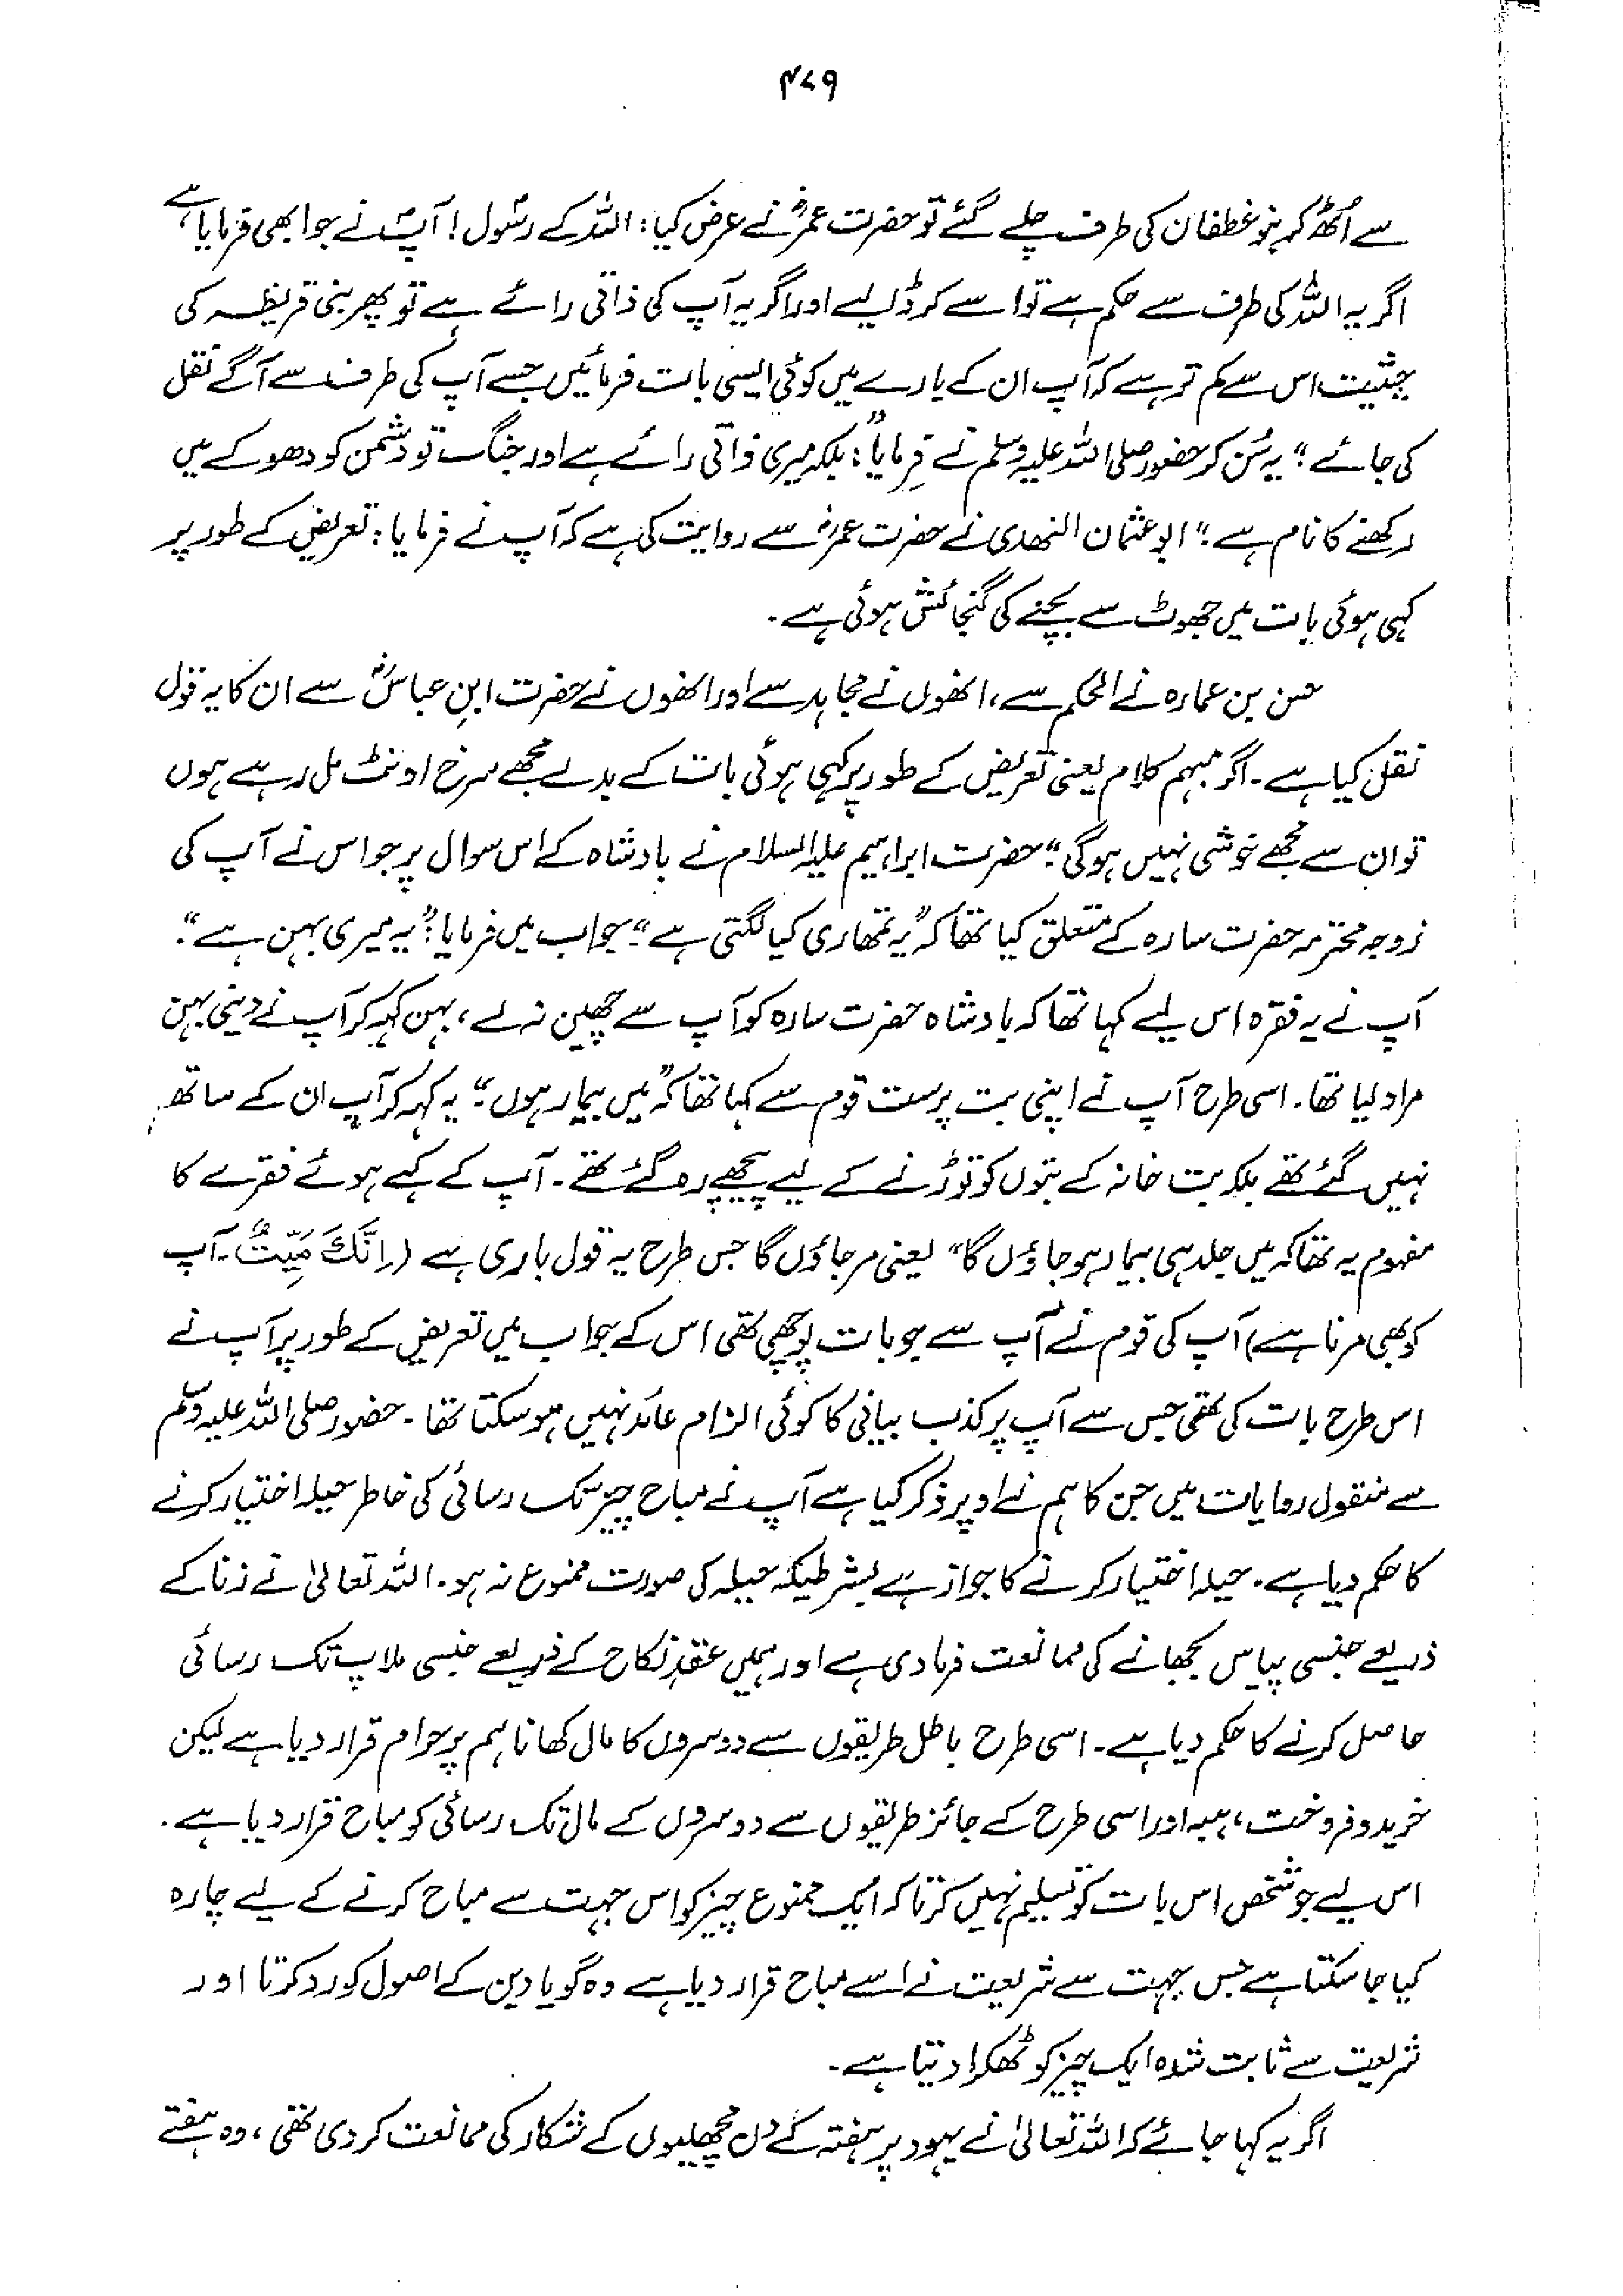 ۴۷۹
سے اُٹھ کر بنو غطفان کی طرف چلے گئے تو حضرت عمرؓ نے عرض کیا: اللہ کے رسول! آپؐ نے جو ابھی فرمایا ہے
اگر یہ اللہ کی طرف سے حکم ہے تو اسے کر ڈالیے اور اگر یہ آپ کی ذاتی رائے ہے تو پھر بنی قریظہ کی
حیثیت اس سے کم تر ہے کہ آپ ان کے بارے میں کوئی ایسی بات فرمائیں جسے آپ کی طرف سے آگے نقل
کی جائے؛" یہ سُن کر حضور صلی اللہ علیہ وسلم نے فرمایا: "بلکہ میری ذاتی رائے ہے اور جنگ تو دشمن کو دھوکے میں
رکھنے کا نام ہے:" ابو عثمان النھدی نے حضرت عمرؓ سے روایت کی ہے کہ آپ نے فرمایا: تعریض کے طور پر
کہی ہوئی بات میں جھوٹ سے بچنے کی گنجائش ہوئی ہے۔
حسن بن عمارہ نے الحکم سے، انھوں نے مجاہد سے اور انھوں نے حضرت ابنِ عباسؓ سے ان کا یہ قول
نقل کیا ہے۔ اگر مبہم کلام یعنی تعریض کے طور پر کہی ہوئی بات کے بدلے مجھے سرخ اونٹ مل رہے ہوں
تو ان سے مجھے خوشی نہیں ہوگی؛" حضرت ابراہیم علیہ السلام نے بادشاہ کے اس سوال پر جو اس نے آپ کی
زوجہ محترمہ حضرت سارہ کے متعلق کیا تھا کہ "یہ تمھاری کیا لگتی ہے"۔ جواب میں فرمایا: "یہ میری بہن ہے"۔
آپ نے یہ فقرہ اس لیے کہا تھا کہ بادشاہ حضرت سارہ کو آپ سے چھین نہ لے، بہن کہہ کر آپ نے دینی بہن
مراد لیا تھا۔ اسی طرح آپ نے اپنی بت پرست قوم سے کہا تھا کہ "میں بیمار ہوں؛" یہ کہہ کر آپ ان کے ساتھ
نہیں گئے تھے بلکہ بت خانہ کے بتوں کو توڑنے کے لیے پیچھے رہ گئے تھے۔ آپ کے کہے ہوئے فقرے کا
مفہوم یہ تھا کہ میں جلد ہی بیمار ہو جاؤں گا" یعنی مرجاؤں گا جس طرح یہ قول باری ہے (اِنَّكَ مَيِّتٌ۔ آپ
کو بھی مرنا ہے) آپ کی قوم نے آپ سے جو بات پوچھی تھی اس کے جواب میں تعریض کے طور پر آپ نے
اس طرح بات کی تھی جس سے آپ پر کذب بیانی کا کوئی الزام عائد نہیں ہو سکتا تھا۔ حضور صلی اللہ علیہ وسلم
سے منقول روایات میں جن کا ہم نے اوپر ذکر کیا ہے آپ نے مباح چیز تک رسائی کی خاطر حیلہ اختیار کرنے
کا حکم دیا ہے۔ حیلہ اختیار کرنے کا جواز ہے بشرطیکہ حیلہ کی صورت ممنوع نہ ہو۔ اللہ تعالیٰ نے زنا کے
ذریعے جنسی پیاس بجھانے کی ممانعت فرما دی ہے اور ہمیں عقدِ نکاح کے ذریعے جنسی ملاپ تک رسائی
حاصل کرنے کا حکم دیا ہے۔ اسی طرح باطل طریقوں سے دوسروں کا مال کھانا ہم پر حرام قرار دیا ہے لیکن
خرید و فروخت، ہبہ اور اسی طرح کے جائز طریقوں سے دوسروں کے مال تک رسائی کو مباح قرار دیا ہے۔
اس لیے جو شخص اس بات کو تسلیم نہیں کرتا کہ ایک ممنوع چیز کو اس جہت سے مباح کرنے کے لیے چارہ
کیا جا سکتا ہے جس جہت سے شریعت نے اسے مباح قرار دیا ہے وہ گویا دین کے اصول کو رد کرتا اور
شریعت سے ثابت شدہ ایک چیز کو ٹھکرا دیتا ہے۔
اگر یہ کہا جائے کہ اللہ تعالیٰ نے یہود پر ہفتہ کے دن مچھلیوں کے شکار کی ممانعت کر دی تھی، وہ ہفتے